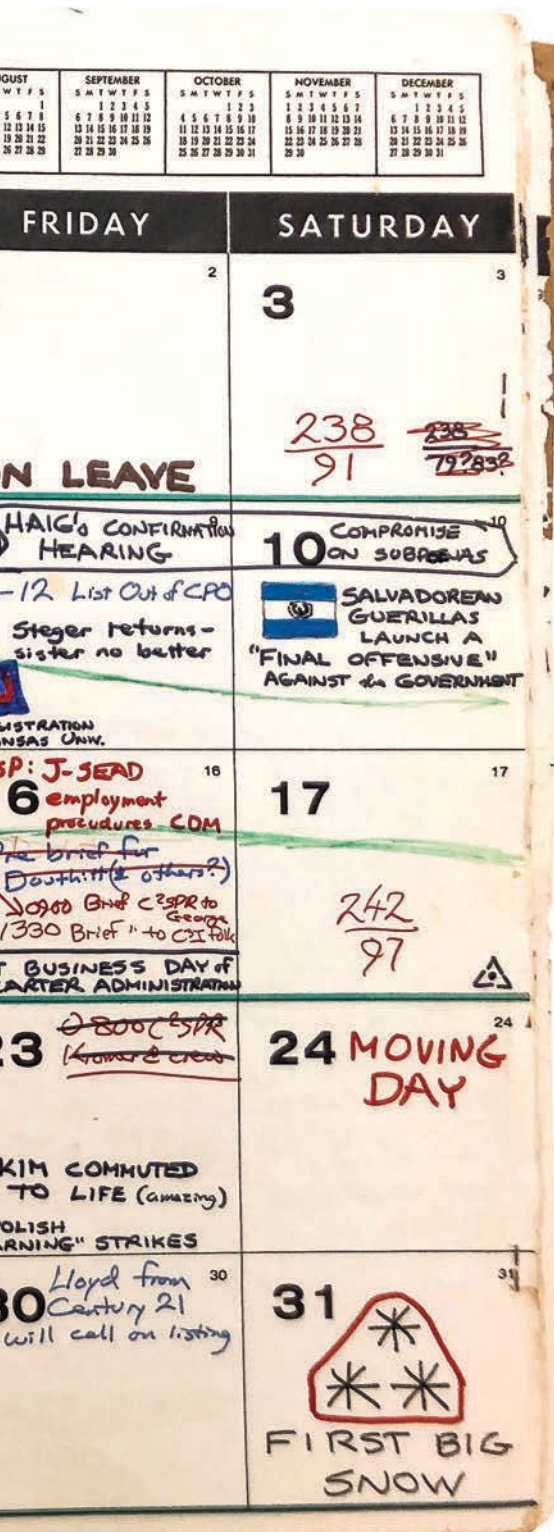 GUST
W T F S
1
5 6 7 8
12 13 14 15
19 20 21 22
26 27 28 29
SEPTEMBER
S M T W T F S
1 2 3 4 5
6 7 8 9 10 11 12
13 14 15 16 17 18 19
20 21 22 23 24 25 26
27 28 29 30
OCTOBER
S M T W T F S
1 2 3
4 5 6 7 8 9 10
11 12 13 14 15 16 17
18 19 20 21 22 23 24
25 26 27 28 29 30 31
NOVEMBER
S M T W T F S
1 2 3 4 5 6 7
8 9 10 11 12 13 14
15 16 17 18 19 20 21
22 23 24 25 26 27 28
29 30
DECEMBER
S M T W T F S
1 2 3 4 5
6 7 8 9 10 11 12
13 14 15 16 17 18 19
20 21 22 23 24 25 26
27 28 29 30 31
FRIDAY
SATURDAY
2
N LEAVE
3
3
238
91
238
79? 83?
HAIG's CONFIRMATION
HEARING
-12 List Out of CPO
Steger returns-
sister no better
GISTRATION
NSAS UNIV.
10
10 COMPROMISE
ON SUBPOENAS
SALVADOREAN
GUERILLAS
LAUNCH A
"FINAL OFFENSIVE"
AGAINST the GOVERNMENT
SP: J-SEAD
16
6 employment
procudures CDM
Pre brief for
Douthitt (& others?)
0900 Brief C²SPR to
George
1330 Brief " to C³I folk
T BUSINESS DAY of
CARTER ADMINISTRATION
17
17
242
97
23 0800 C²SPR
Komer & crew
KIM COMMUTED
TO LIFE (amazing)
OLISH
ARNING" STRIKES
24
24 MOVING
DAY
30
30 Lloyd from
Century 21
will call on listing
31
31
FIRST BIG
SNOW